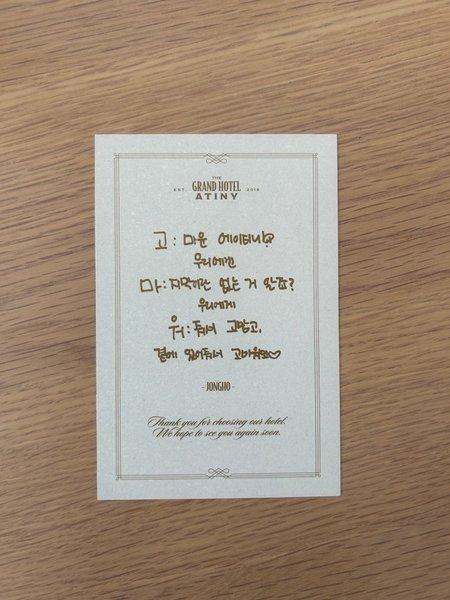 THE
GRAND HOTEL
EST. 2018
ATINY
고 : 마운 에이티니?
우리에겐
마 : 지막이란 없는 거 알죠?
우리에게
워 : 줘서 고맙고,
곁에 있어줘서 고마워요♡
- JONGHO -
Thank you for choosing our hotel.
We hope to see you again soon.